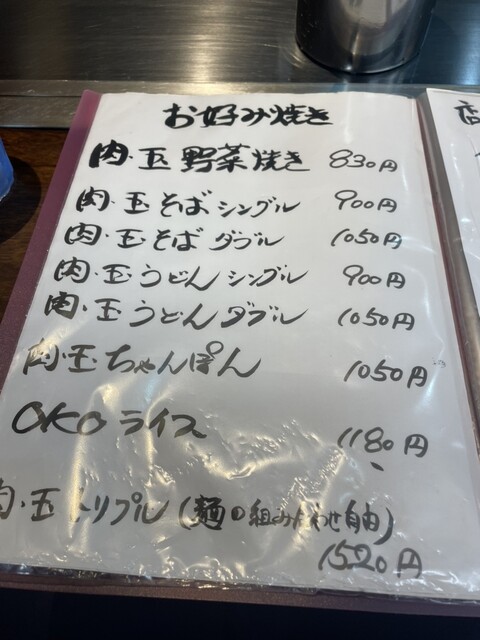 お好み焼き
肉・玉 野菜焼き 830円
肉・玉そば シングル 900円
肉・玉そば ダブル 1050円
肉・玉うどん シングル 900円
肉・玉うどん ダブル 1050円
肉・玉ちゃんぽん 1050円
OKOライス 1180円
肉・玉トリプル (麺の組み合わせ自由)
1520円
店